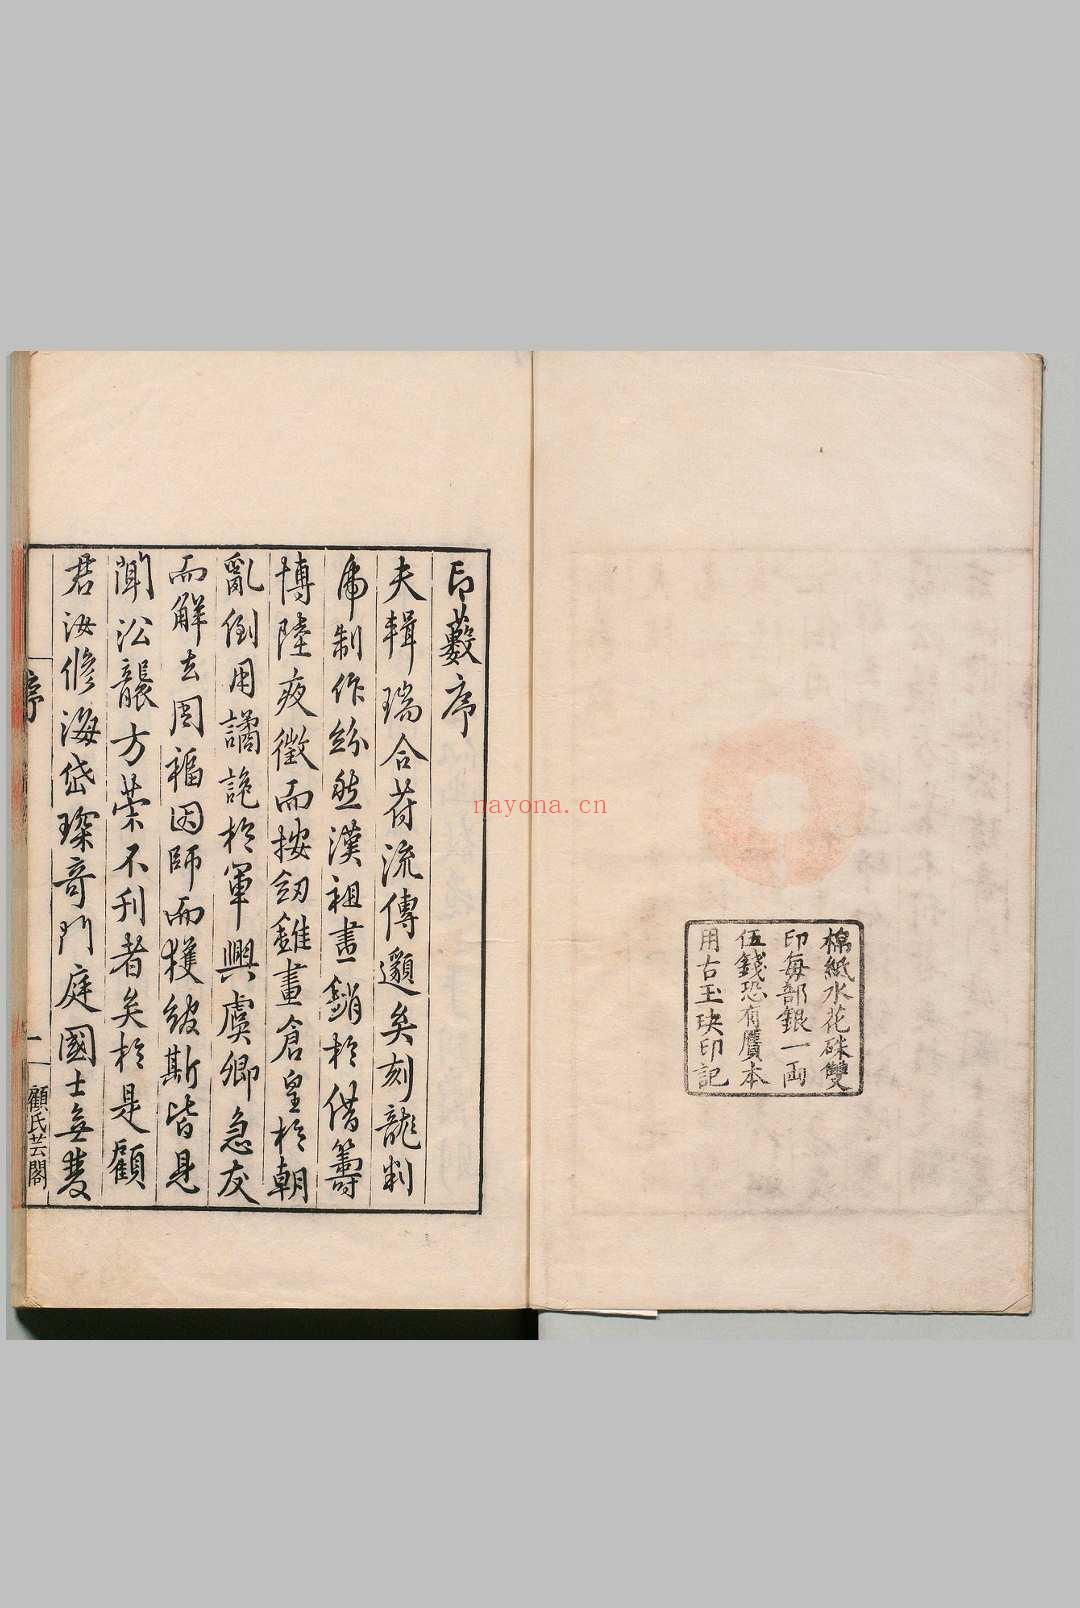 棉紙水花硃雙
印每部銀一兩
伍錢恐有贋本
用古玉玦印記
印藪序
夫輯瑞合符流傳邈矣刻龍判
虎制作紛然漢祖畫銷於借籌
博陸夜徵而按劒錐畫倉皇於朝
亂倒用譎詭於軍興虞卿急友
而解去周福因師而獲綬斯皆見
聞沿襲方策不刊者矣於是顧
君汝修海岱琛奇門庭國士無雙
序
一
顧氏芸閣
nayona.cn